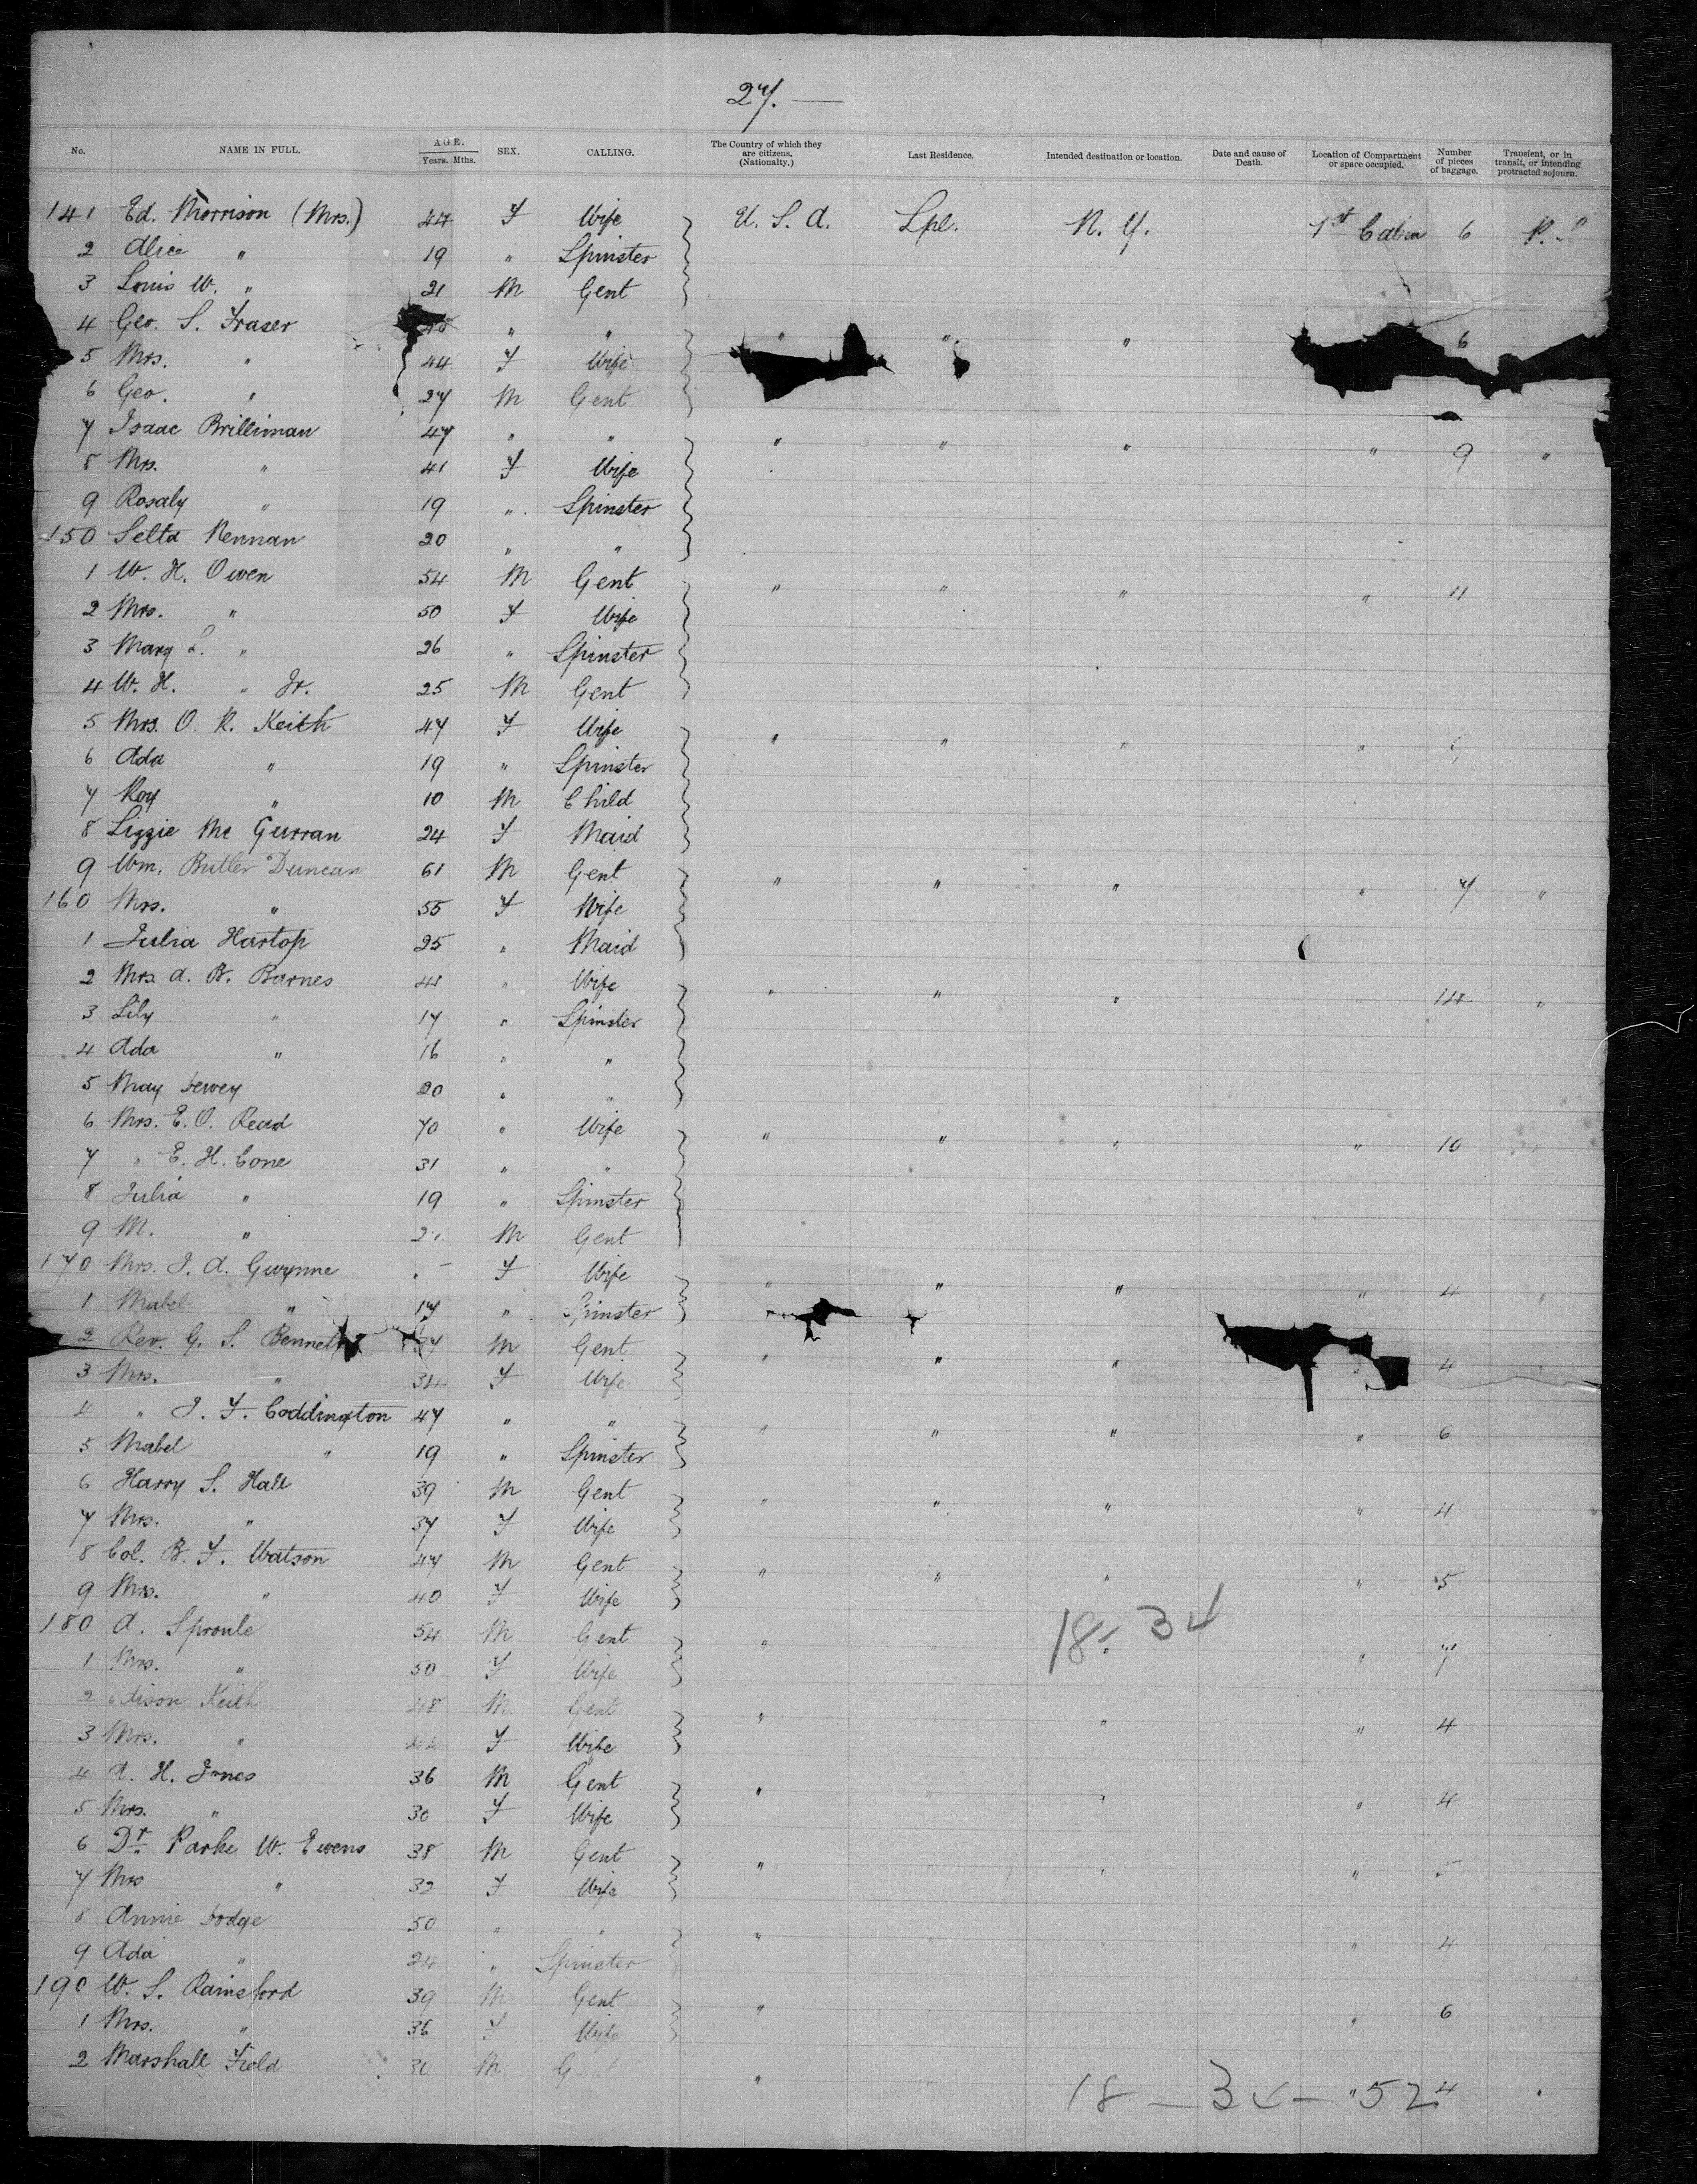 27. —
No. NAME IN FULL. AGE. Years. Mths. SEX. CALLING. The Country of which they are citizens, (Nationalty.) Last Residence. Intended destination or location. Date and cause of Death. Location of Compartment or space occupied. Number of pieces of baggage. Transient, or in transit, or intending protracted sojourn.
141 Ed. Morrison (Mrs.) 44 F Wife U. S. A. Lpl. N. Y. 1st Cabin 6
2 Alice " 19 " Spinster
3 Louis W. " 21 M Gent
4 Geo. S. Fraser " " " " " 6
5 Mrs. " 44 F Wife
6 Geo. " 27 M Gent
7 Isaac Brilliman 47 " " " " " " 9 "
8 Mrs. " 41 F Wife
9 Rosaly " 19 " Spinster
150 Selta Nennan 20 " "
1 W. H. Owen 54 M Gent " " " " 11
2 Mrs. " 50 F Wife
3 Mary L. " 26 " Spinster
4 W. H. " Jr. 25 M Gent
5 Mrs. O. R. Keith 47 F Wife " " " "
6 Ada " 19 " Spinster
7 Roy " 10 M Child
8 Lizzie Mc Gurran 24 F Maid
9 Wm. Butler Duncan 61 M Gent " " " " 7 "
160 Mrs. " 55 F Wife
1 Julia Hartop 25 " Maid
2 Mrs. A. B. Barnes 41 " Wife " " " " 14 "
3 Lily " 17 " Spinster
4 Ada " 16 " "
5 May Dewey 20 " "
6 Mrs. E. O. Read 70 " Wife " " " " 10 "
7 " E. H. Cone 31 " "
8 Julia " 19 " Spinster
9 M. " M Gent
170 Mrs. J. A. Gwynne F Wife " " " " 4 "
1 Mabel " 17 " Spinster
2 Rev. G. S. Bennett M Gent " " " " 4
3 Mrs. " 34 F Wife
4 " J. F. Coddington 47 " " " " " " 6
5 Mabel " 19 " Spinster
6 Harry S. Hall 39 M Gent " " " " 4
7 Mrs. " 37 F Wife
8 Col. B. F. Watson 47 M Gent " " " " 5
9 Mrs. " 40 F Wife
180 A. Sproule 54 M Gent " 18- 34 " 7
1 Mrs. " 50 F Wife
2 Edison Keith 48 M Gent " " " 4
3 Mrs. " F Wife
4 A. H. Jones 36 M Gent " " " 4
5 Mrs. " 30 F Wife
6 Dr. Parke W. Ewens 38 M Gent " " " 5
7 Mrs " 32 F Wife
8 Annie Dodge 50 " " " " " 4
9 Ada " 24 " Spinster
190 W. S. Rainsford 39 M Gent " " 6
1 Mrs. " 36 F Wife
2 Marshall Field 30 M Gent " " 4
18 — 34 — 52